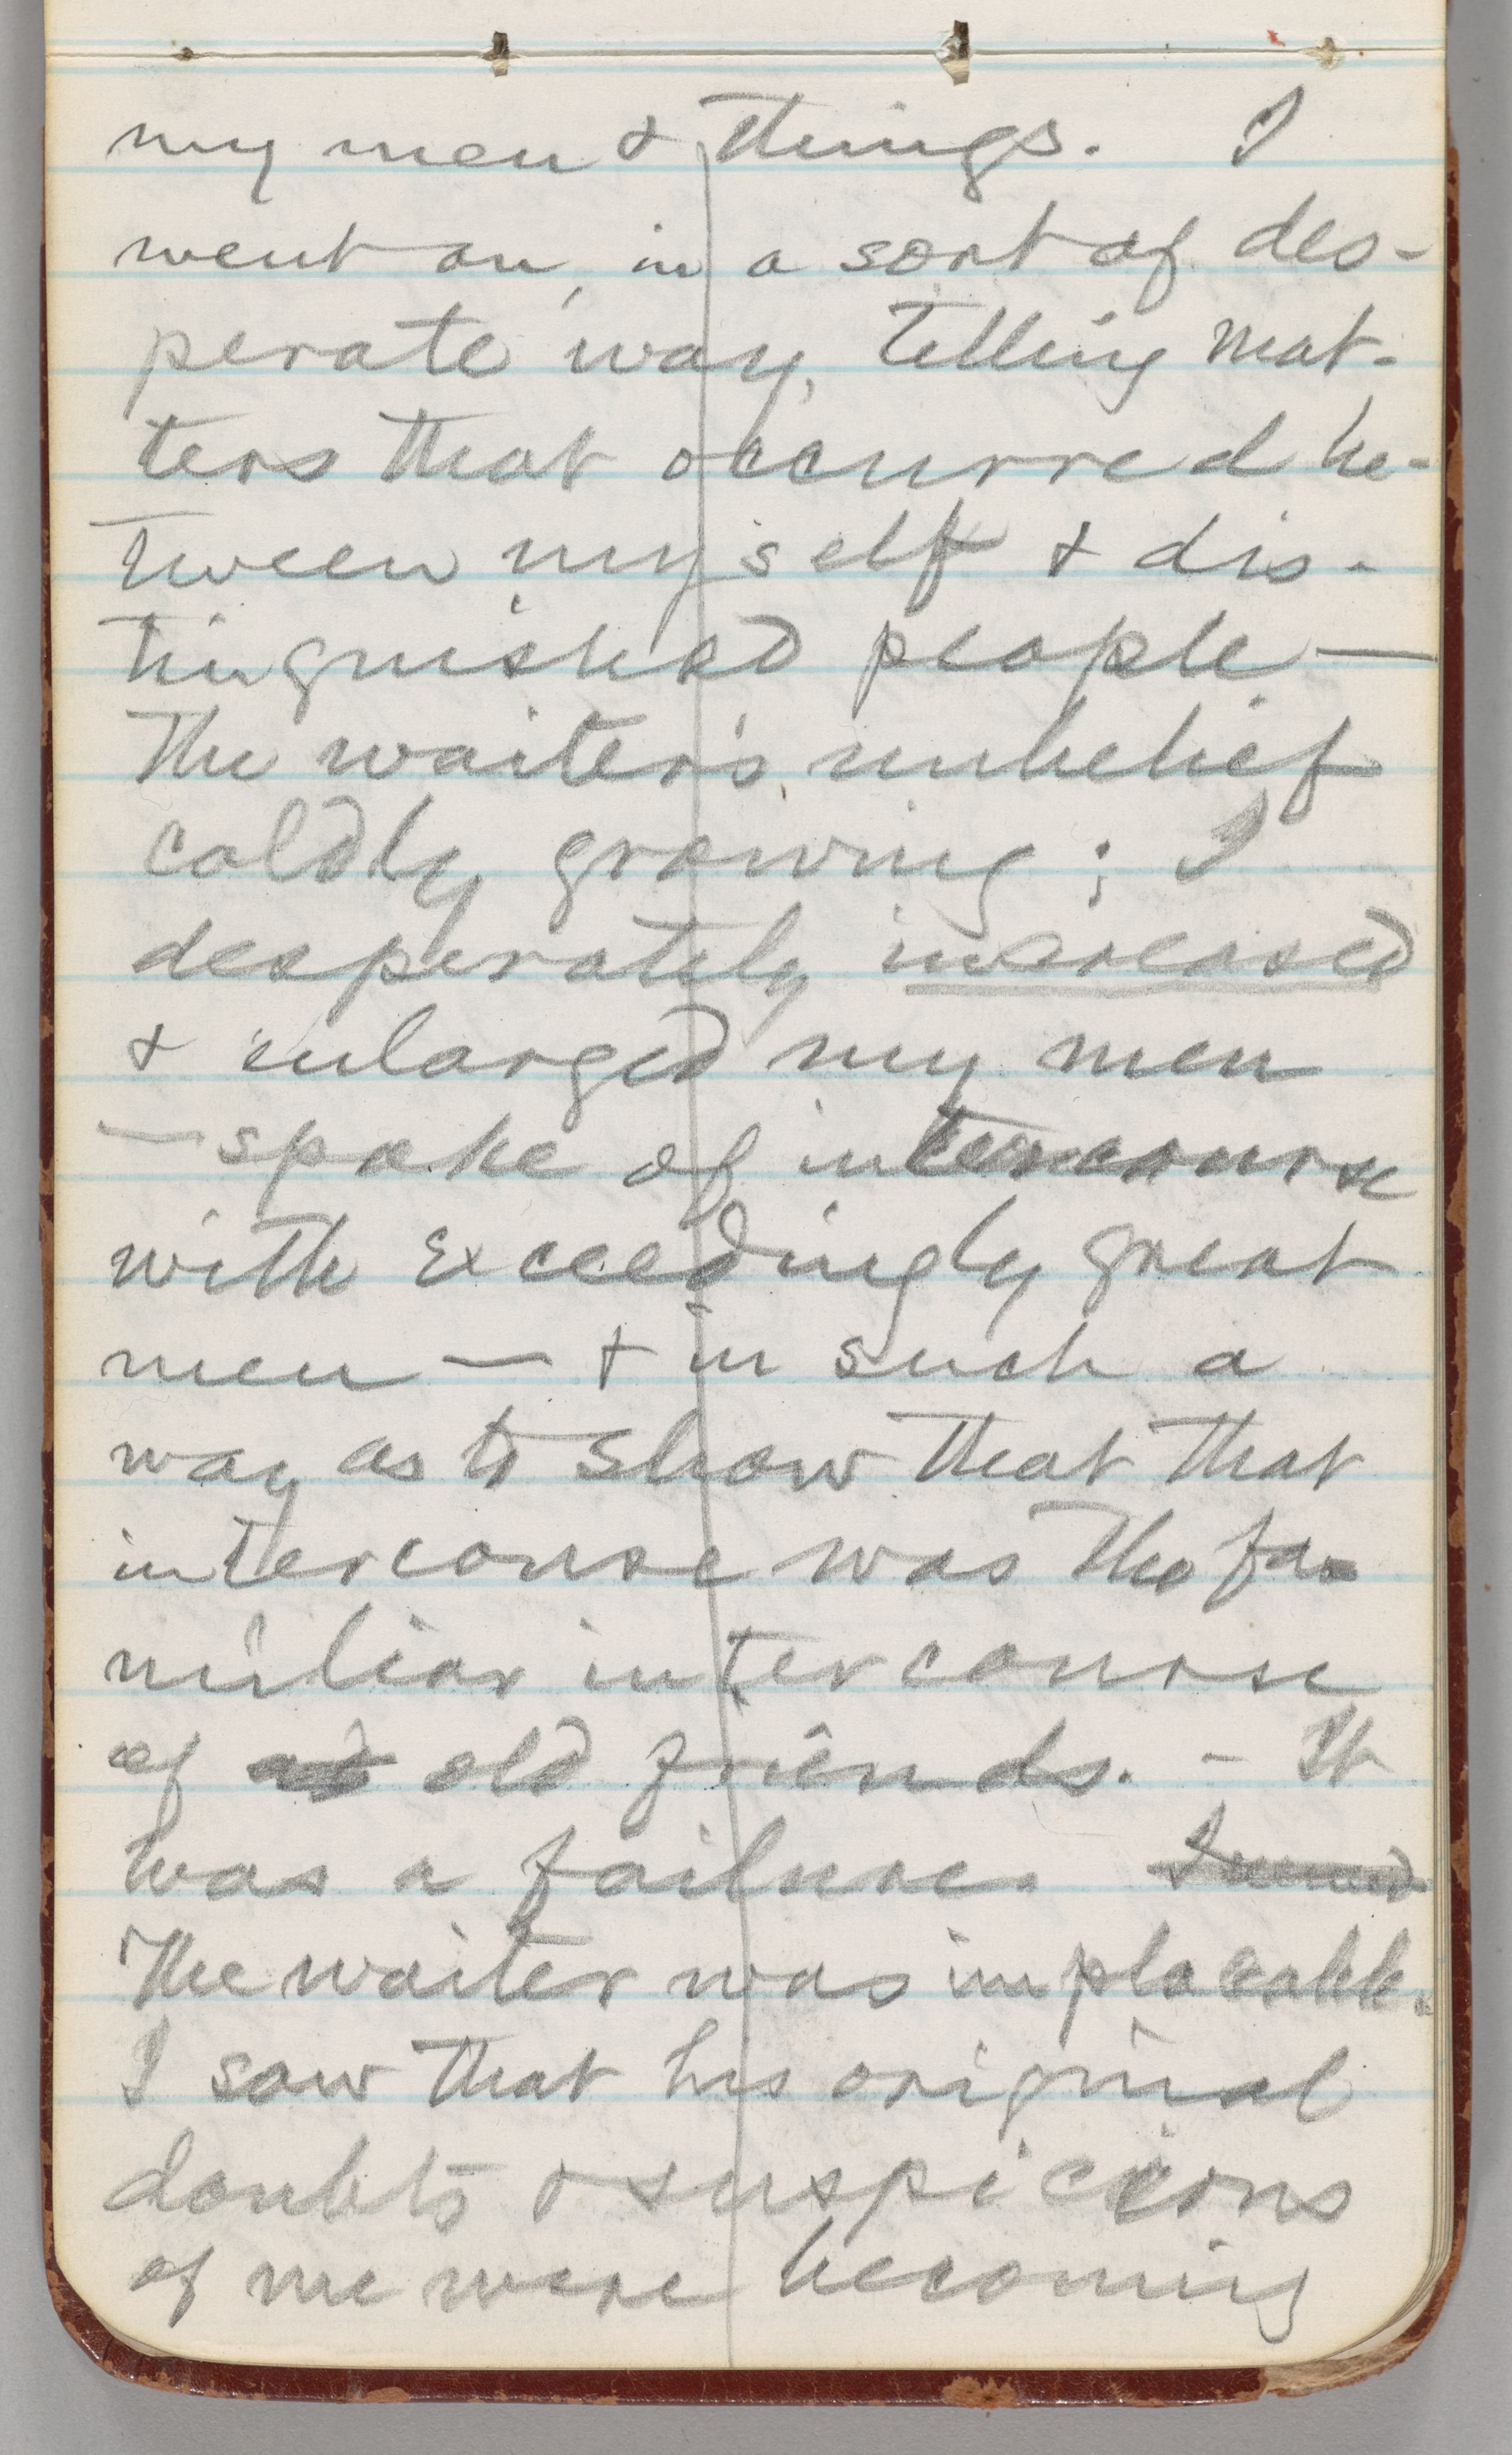 my men & things. I
went on, in a sort of des-
perate way, telling mat-
ters that occurred be-
tween myself & dis-
tinguished people —
The waiter's unbelief
coldly growing; I
desperately increased
& enlarged my men
— spoke of intercourse
with exceedingly great
men — & in such a
way as to show that that
intercourse was the fa-
miliar intercourse
of old friends. - It
was a failure. I seemed
The waiter was implacable.
I saw that his original
doubts & suspicions
of me were becoming